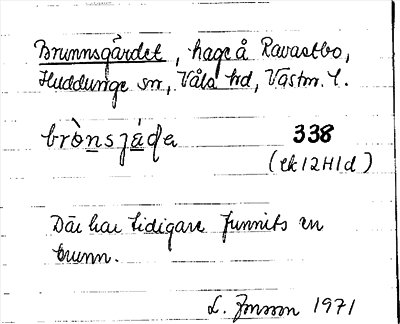 Brunnsgärdet, hage å Ravastbo,
Huddunge sn, Våla hd, Västm. l.
bròn̲sjä̲ɖe 338
(ek 12H1d)
Där har tidigare funnits en
brunn.
L. Jonsson 1971